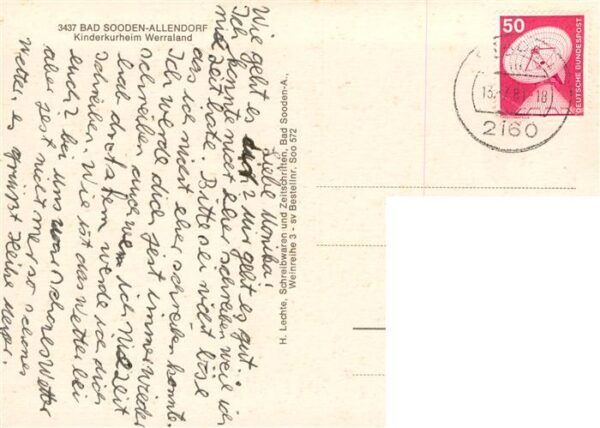 3437 BAD SOODEN-ALLENDORF
Kinderkurheim Werraland
Liebe Monika!
Wie geht es dir? Mir geht es gut.
Ich konnte nicht eher schreiben weil ich
nie zeit hate. Bitte sei nicht böse
das ich nicht eher schreiben konnte.
Ich werde dich jezt immer wieder
schreiben auch wenn ich nie zeit
hab drotstem werde ich dich
schreiben. Wie ist das Wetter bei
euch? bei uns war schones Wetter
aber jezt nicht mer so schones
Wetter es grüßt Heike Meyer.
H. Lechte, Schreibwaren und Zeitschriften, Bad Sooden-A.,
Weinreihe 3 - sv Bestellnr. Soo 572
50
DEUTSCHE BUNDESPOST
2160